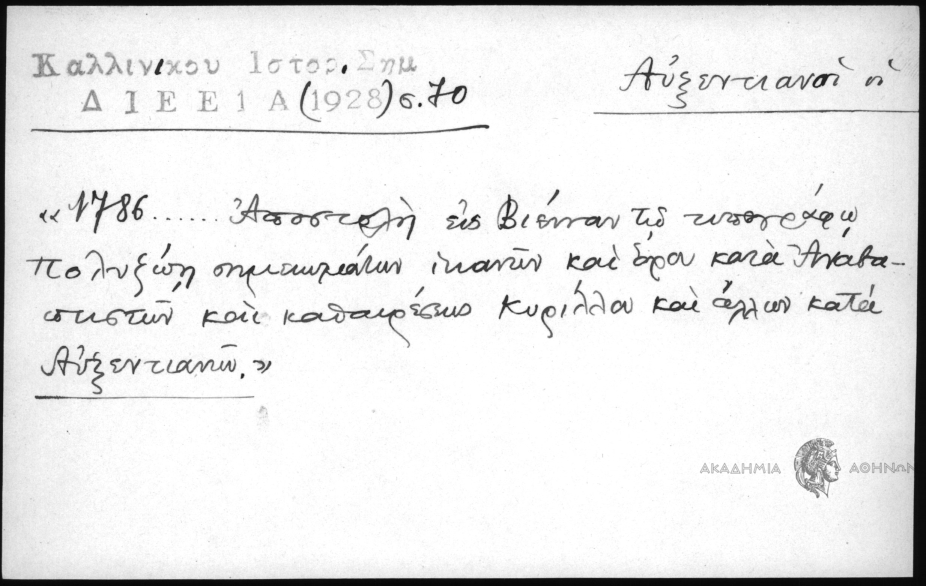 Καλλινίκου Ιστορ. Σημ
Δ Ι Ε Ε 1 Α (1928) σ. 70
Αὐξεντιανοὶ οἱ
«1786...... Ἀποστολὴ εἰς Βιένναν τῷ τυπογράφῳ
Πολυζώῃ σημειωμάτων ἱκανῶν καὶ ὅρου κατὰ Ἀναβα-
πτιστῶν καὶ καθαιρέσεως Κυρίλλου καὶ ἄλλων κατά
Αὐξεντιανῶν.»
ΑΚΑΔΗΜΙΑ ΑΘΗΝΩΝ